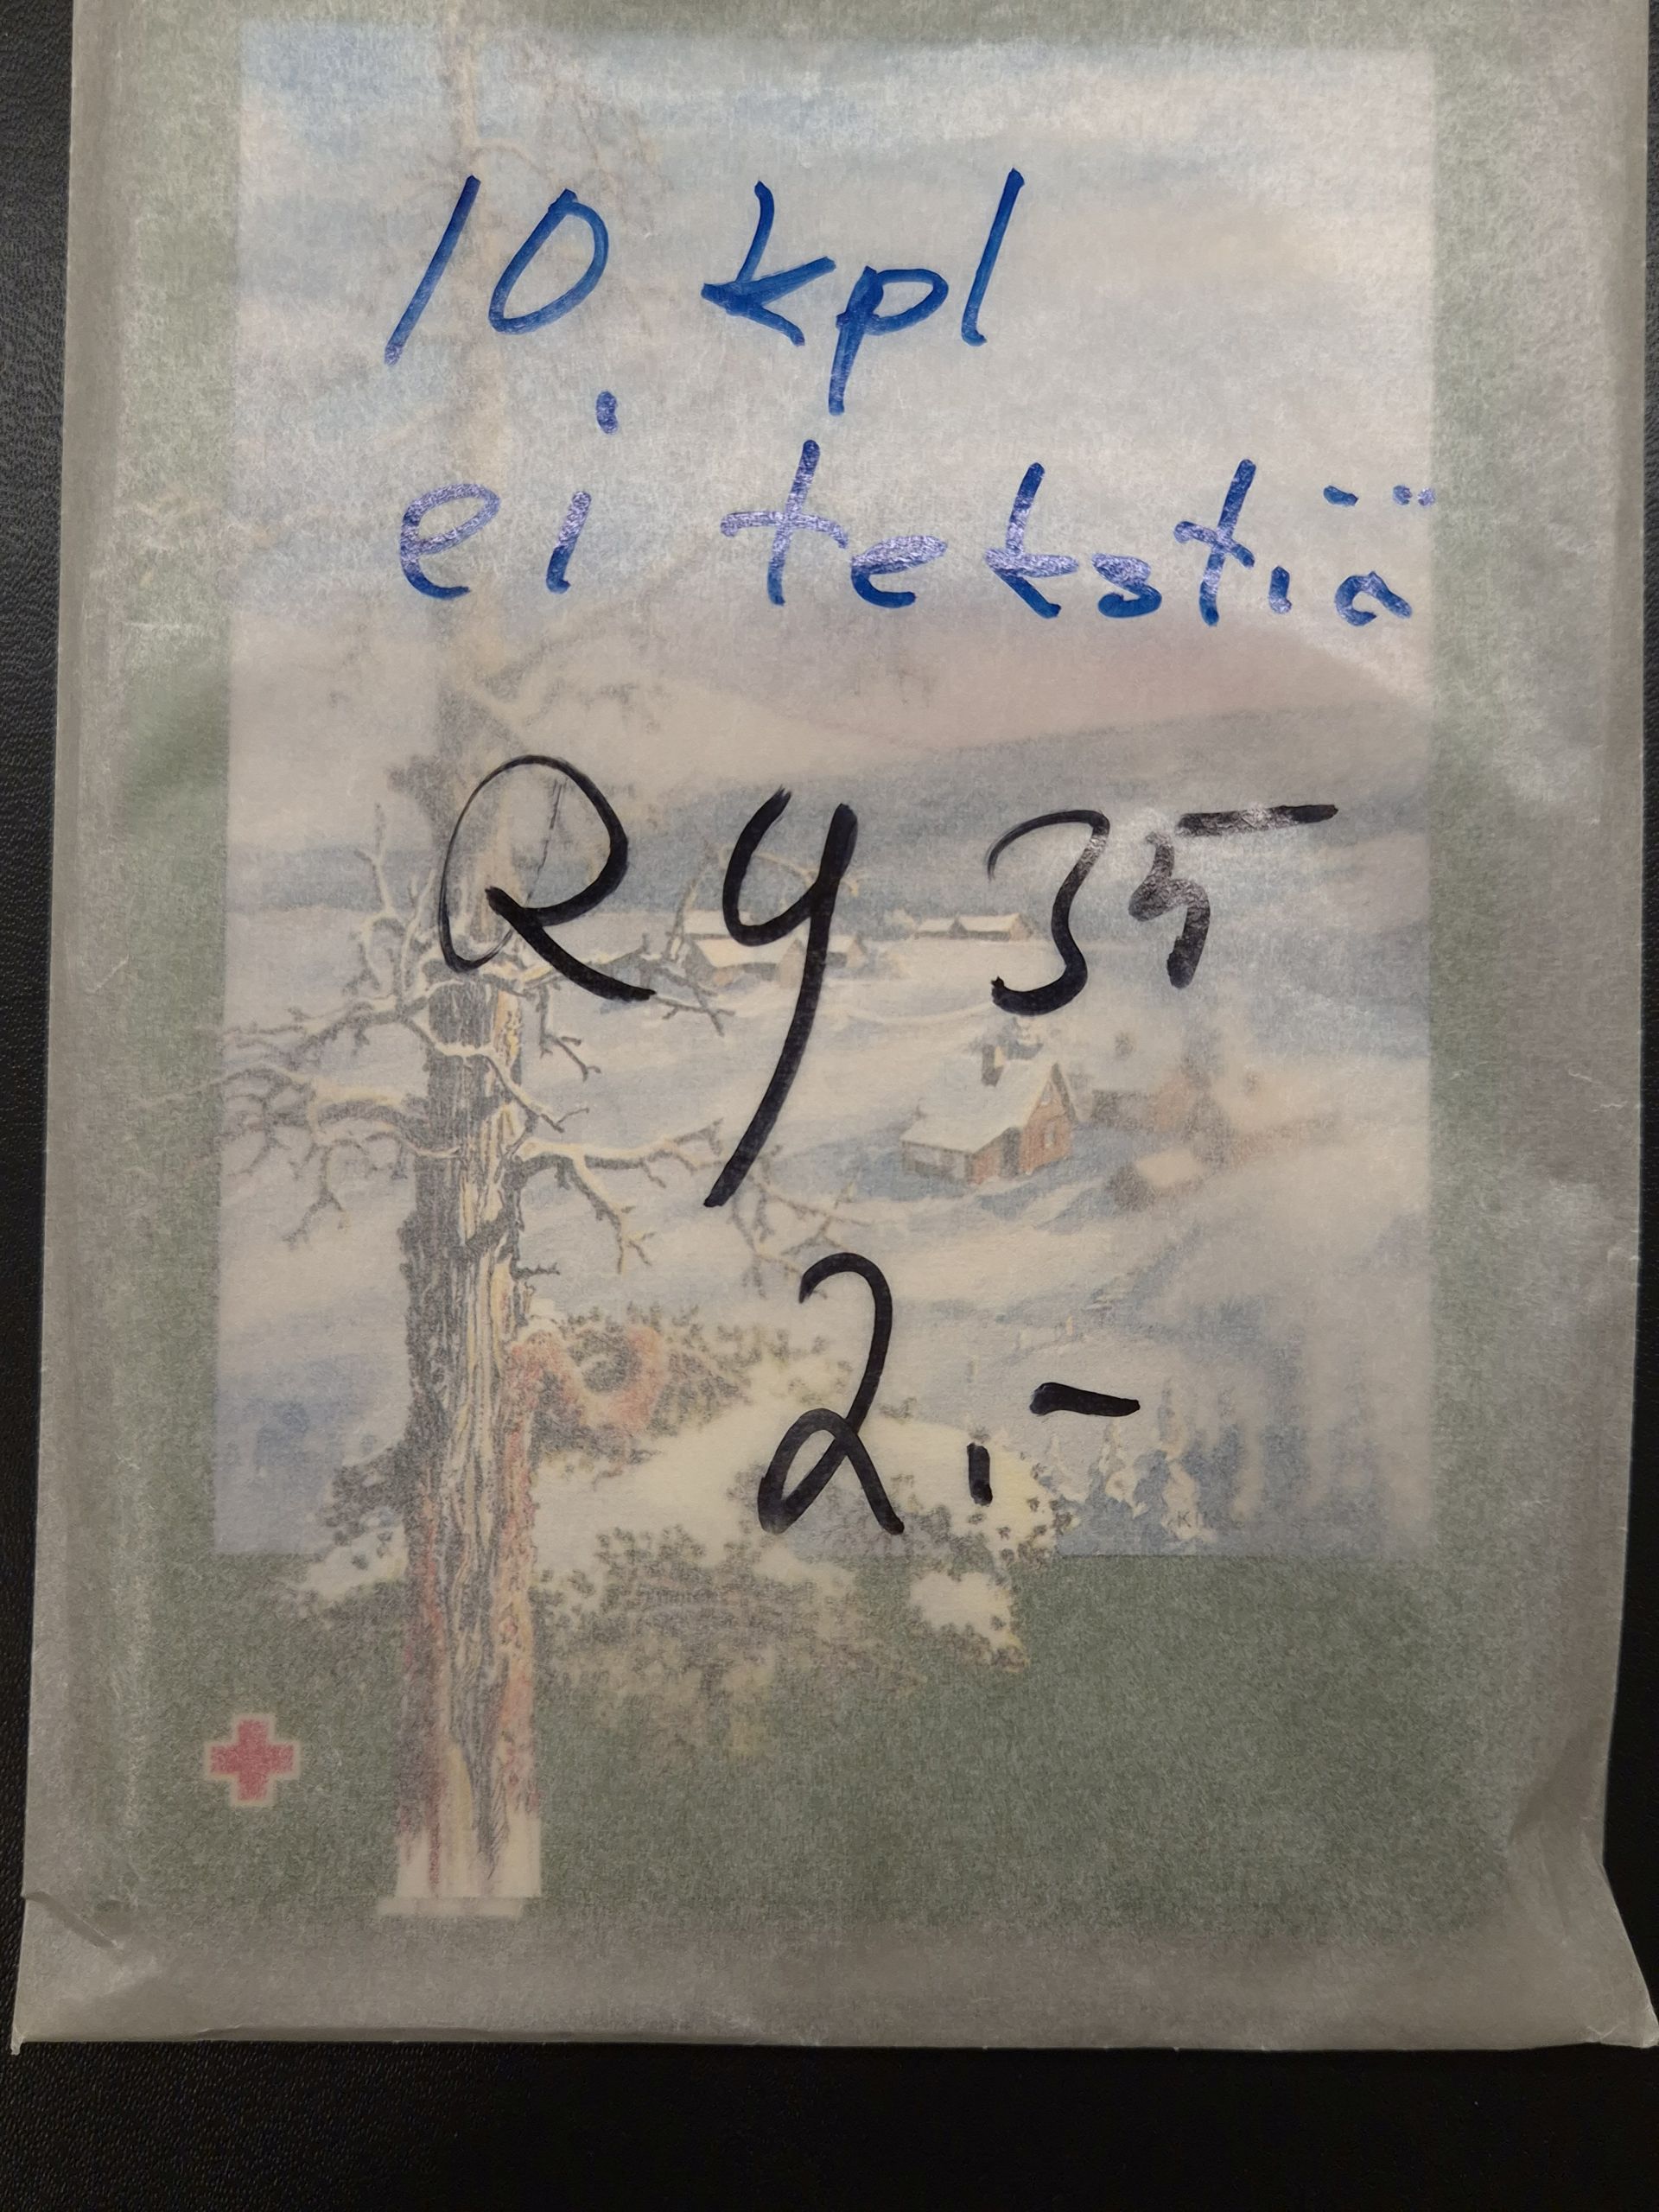 10 kpl
ei tekstiä
Ry 35
2.-